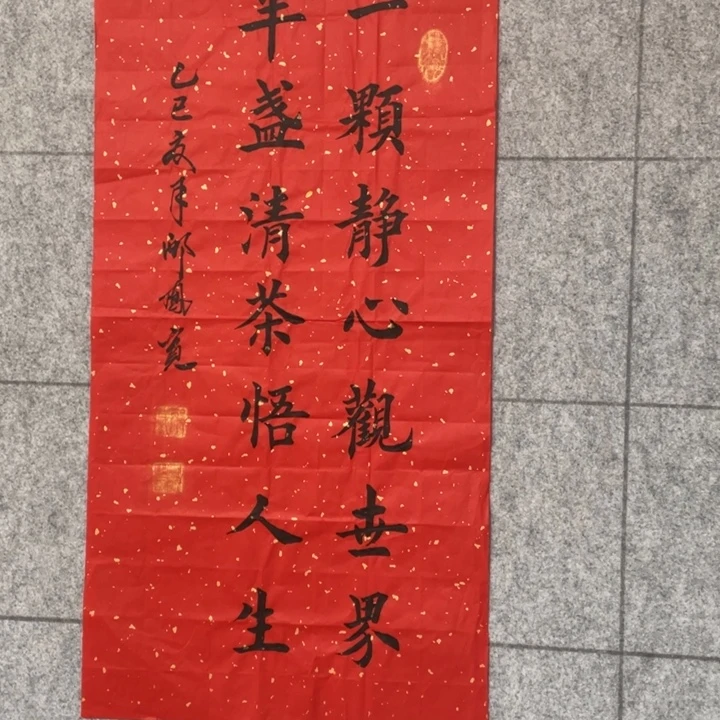 一顆靜心觀世界
半盞清茶悟人生
乙巳夏月邴鳳寬